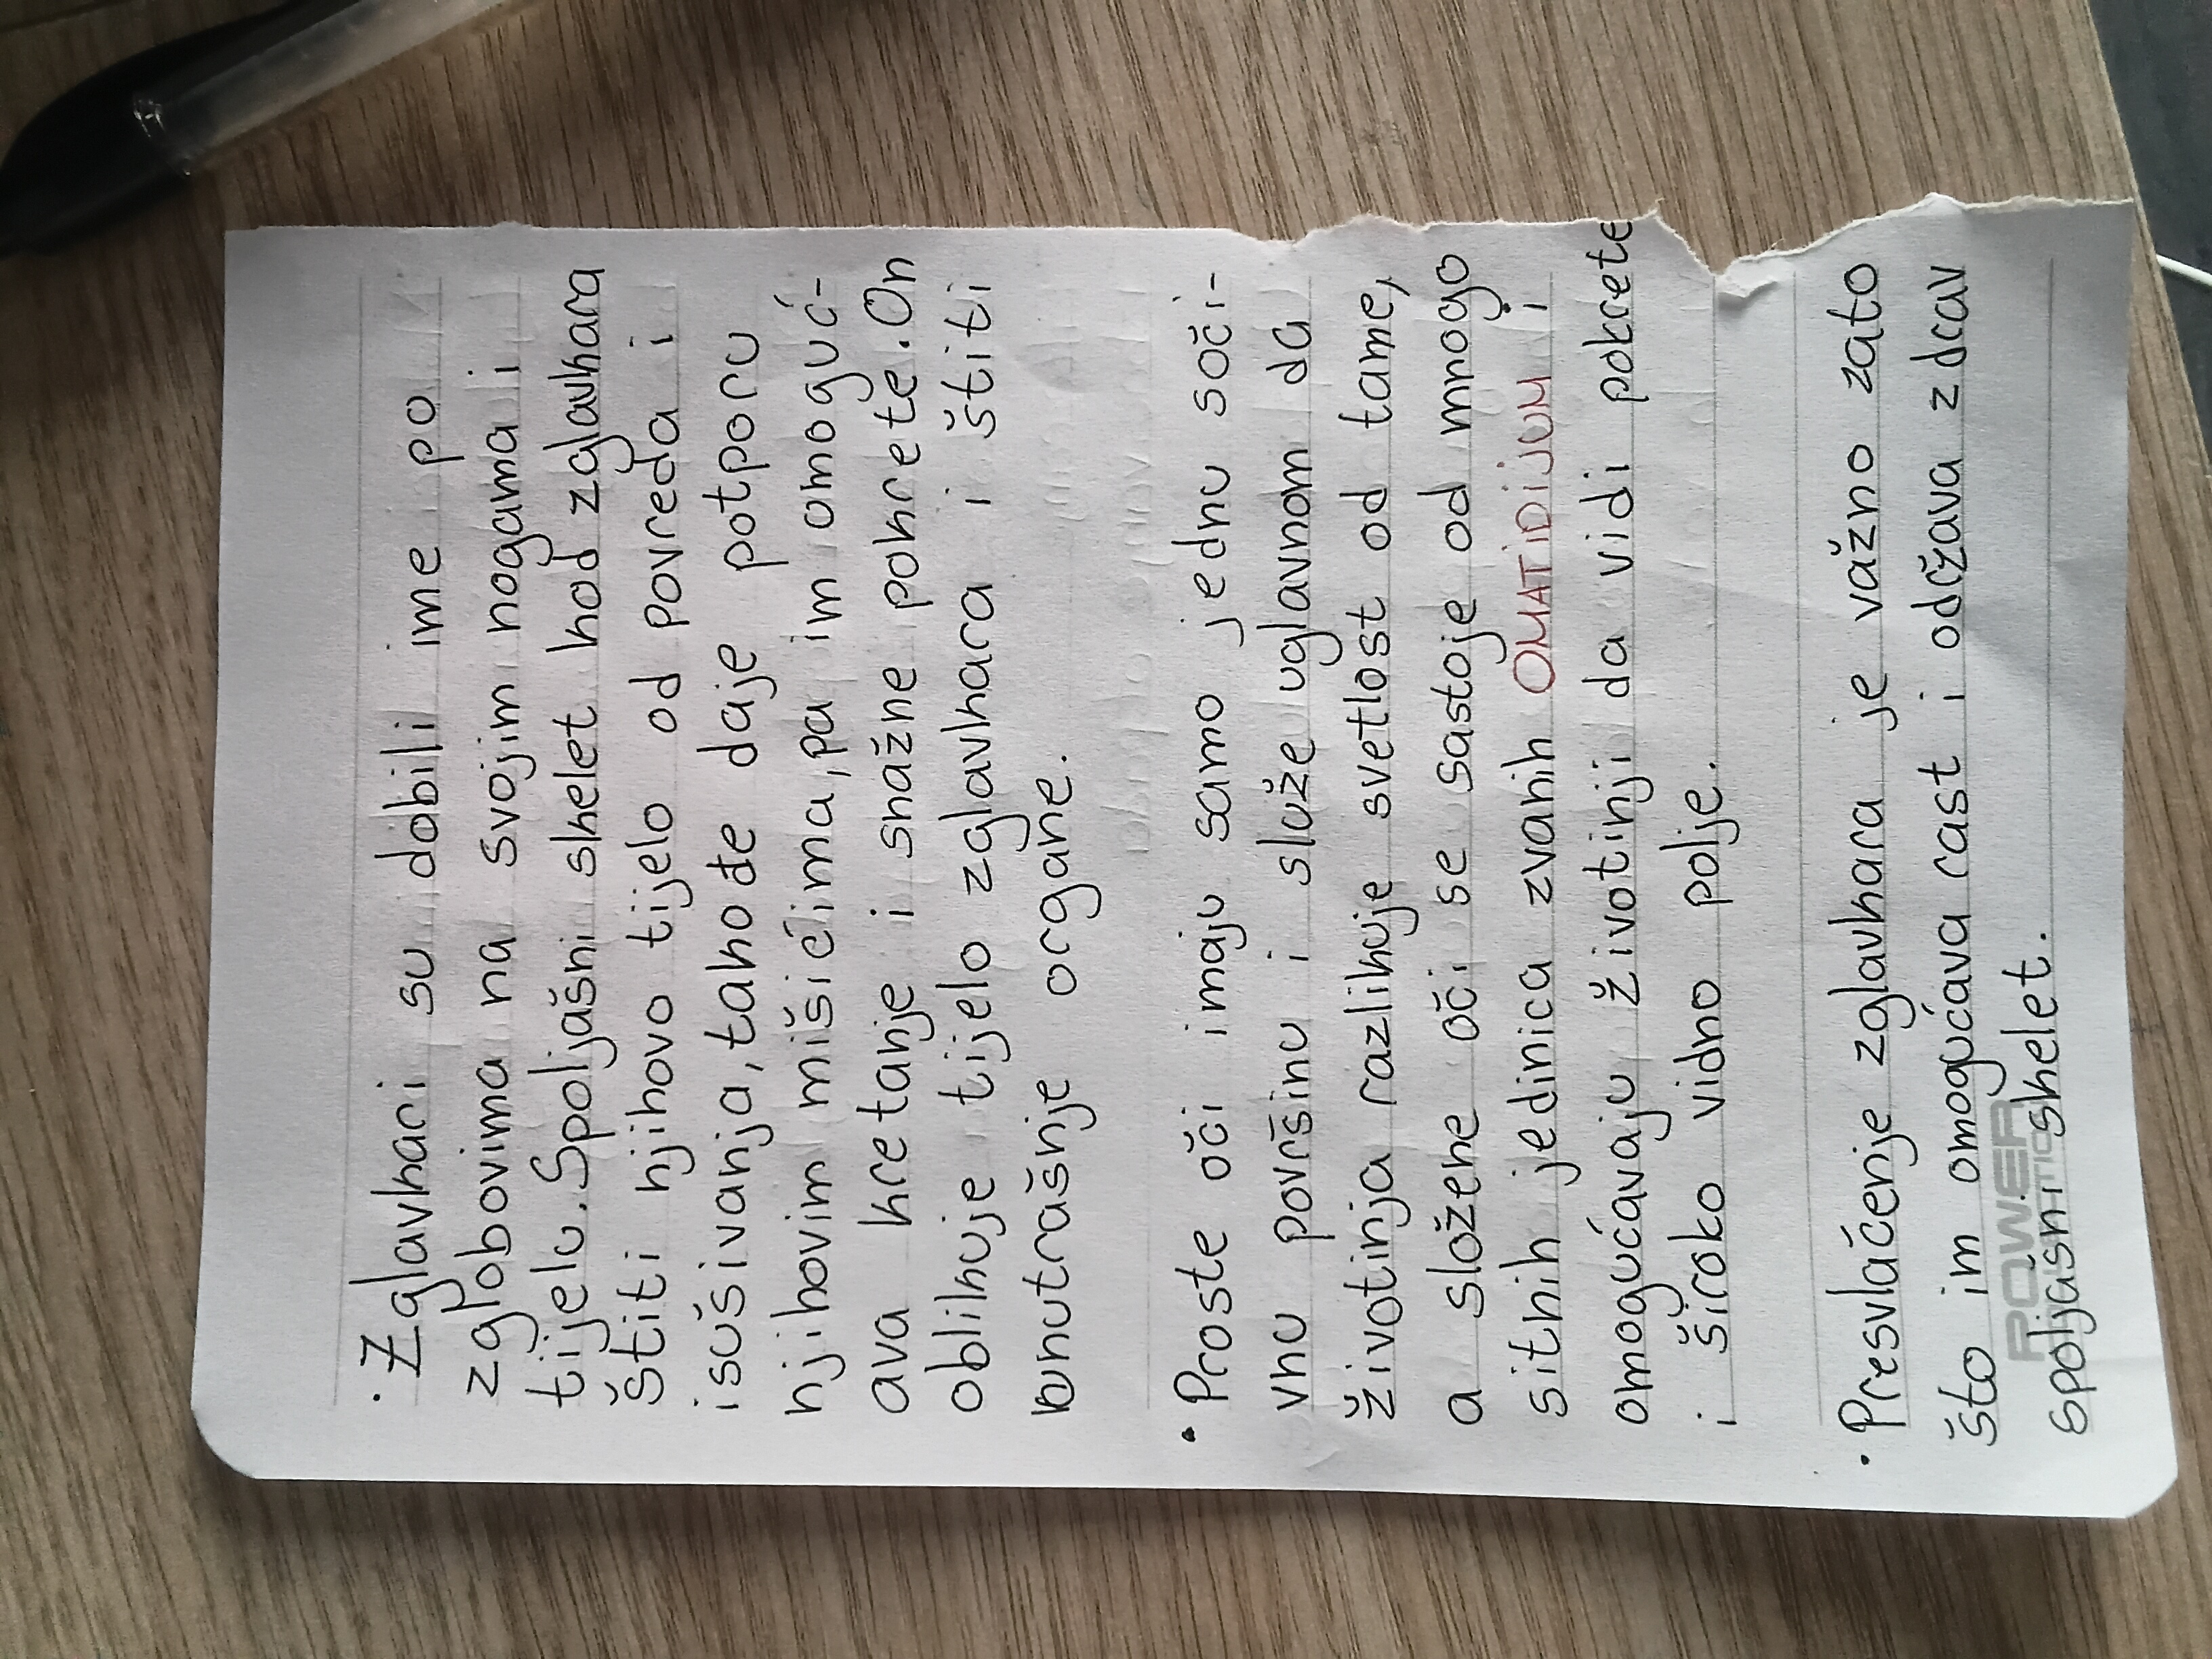 • Zglavkari su dobili ime po
zglobovima na svojim nogama i
tijelu. Spoljašni skelet kod zglavkara
štiti njihovo tijelo od povreda i
isušivanja, takođe daje potporu
njihovim mišićima, pa im omoguć-
ava kretanje i snažne pokrete. On
oblikuje tijelo zglavkara i štiti
unutrašnje organe.
• Proste oči imaju samo jednu soči-
vnu površinu i služe uglavnom da
životinja razlikuje svetlost od tame,
a složene oči se sastoje od mnogo
sitnih jedinica zvanih OMATIDIJUM i
omogućavaju životinji da vidi pokrete
i široko vidno polje.
• Presvlačenje zglavkara je važno zato
što im omogućava rast i održava zdrav
spoljašni skelet.
POWER